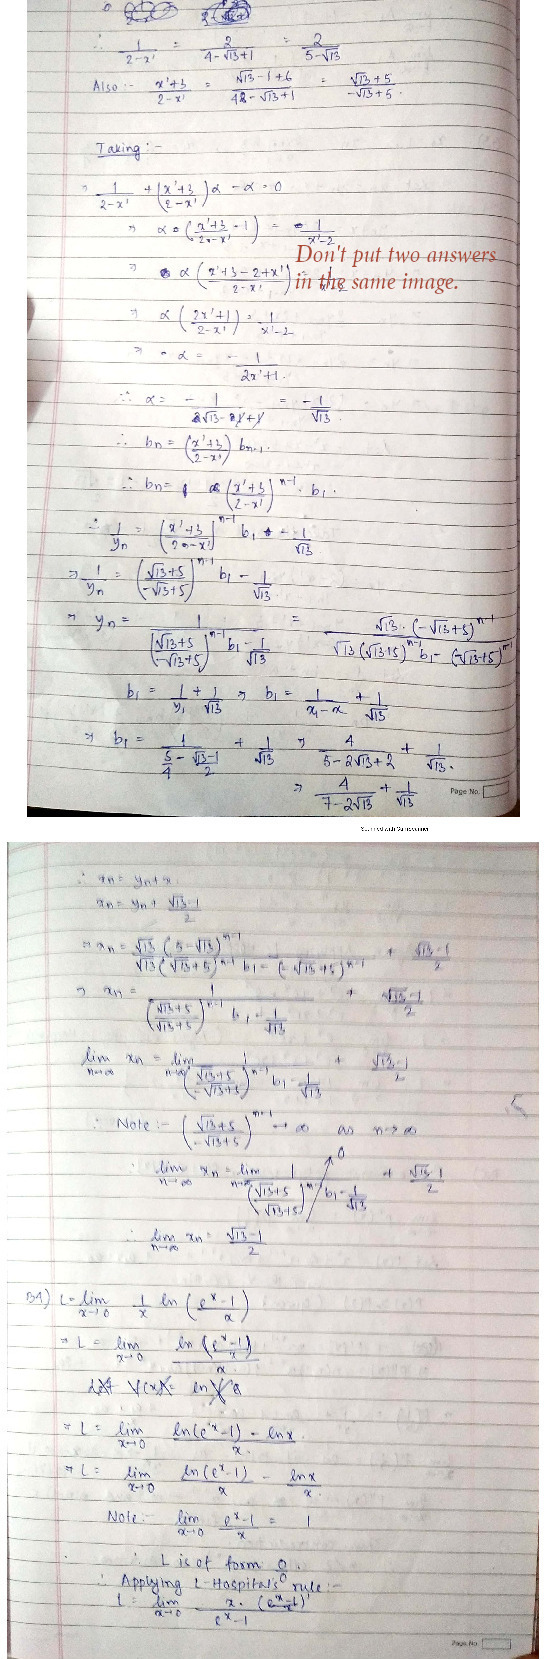 ∴ 1/(2-x') = 2/(4-√13+1) = 2/(5-√13)
Also :- (x'+3)/(2-x') = (√13-1+6)/(4-√13+1) = (√13+5)/(-√13+5).
Taking :-
⇒ 1/(2-x') + ((x'+3)/(2-x'))α - α = 0
⇒ α((x'+3)/(2-x') - 1) = 1/(x'-2)
Don't put two answers
in the same image.
⇒ α((x'+3-2+x')/(2-x')) =
⇒ α((2x'+1)/(2-x')) = 1/(x'-2)
⇒ α = - 1/(2x'+1).
∴ α = - 1/(2√13-2/2+1) = - 1/√13.
∴ bn = ((x'+3)/(2-x')) bn-1.
∴ bn = ((x'+3)/(2-x'))^(n-1) . b1.
∴ 1/yn = ((x'+3)/(2-x'))^(n-1) b1 - 1/√13
⇒ 1/yn = ((√13+5)/(-√13+5))^(n-1) b1 - 1/√13
⇒ yn = 1/(((√13+5)/(-√13+5))^(n-1) b1 - 1/√13) = √13.(-√13+5)^(n-1)/(√13(√13+5)^(n-1) b1 - (-√13+5)^(n-1))
b1 = 1/y1 + 1/√13 ⇒ b1 = 1/(x1-x) + 1/√13
⇒ b1 = 1/(5/4 - (√13-1)/2) + 1/√13 ⇒ 4/(5-2√13+2) + 1/√13.
⇒ 4/(7-2√13) + 1/√13
Page No.
Scanned with CamScanner
∴ xn = yn + x
xn = yn + (√13-1)/2
⇒ xn = √13(5-√13)^(n-1)/(√13(√13+5)^(n-1) b1 - (-√13+5)^(n-1)) + (√13-1)/2
⇒ xn = 1/(((√13+5)/(√13+5))^(n-1) b1 - 1/√13) + (√13-1)/2
lim n→∞ xn = lim n→∞ 1/(((√13+5)/(-√13+5))^(n-1) b1 - 1/√13) + (√13-1)/2
∴ Note :- ((√13+5)/(-√13+5))^(n-1) → ∞ as n→∞
∴ lim n→∞ xn = lim n→∞ 1/(((√13+5)/(√13+5))^(n-1) b1 - 1/√13) 0 + (√13-1)/2
∴ lim n→∞ xn = (√13-1)/2
L = lim x→0 1/x ln((e^x-1)/x)
⇒ L = lim x→0 ln((e^x-1)/x)/x.
⇒ L = lim x→0 (ln(e^x-1) - lnx)/x.
⇒ L = lim x→0 ln(e^x-1)/x - lnx/x.
Note:- lim x→0 (e^x-1)/x = 1
∴ L is of form 0/0.
∴ Applying L-Hospital's rule :-
L = lim x→0 x.((e^x-1)/x)'/(e^x-1)
Page No.